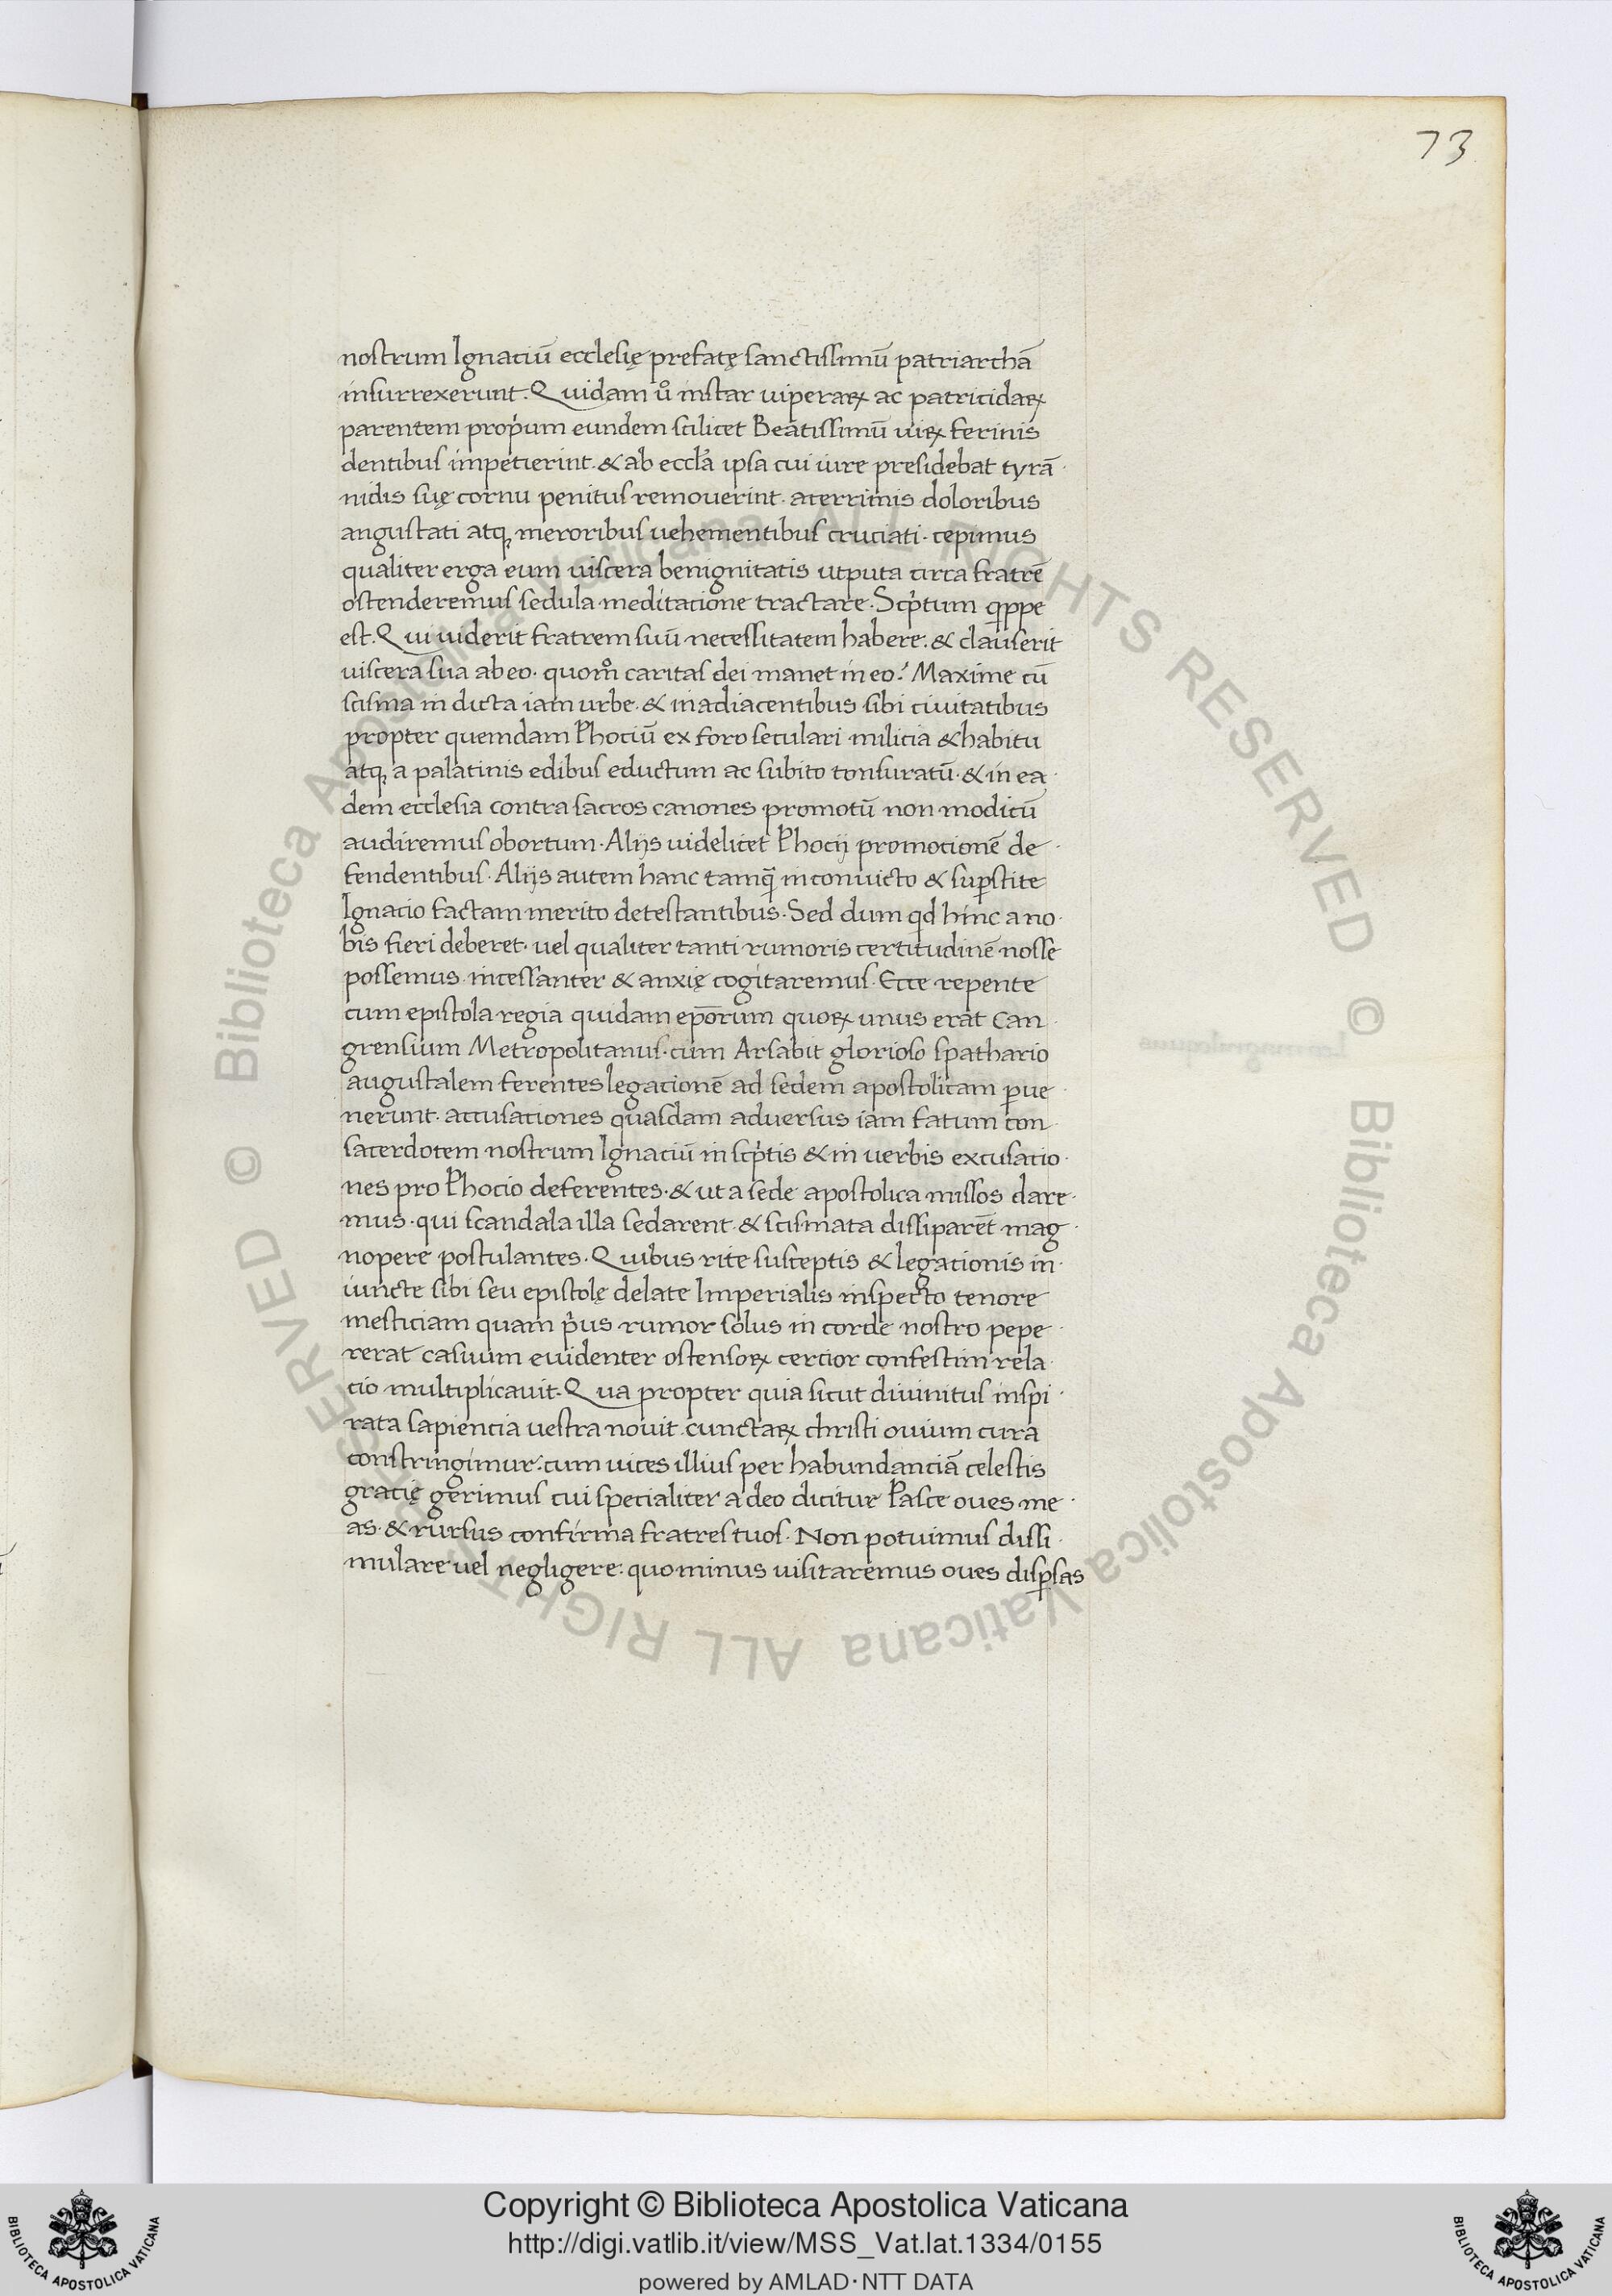 73
nostrum Ignaciū ecclesię prefatę sanctissimū patriarchā
insurrexerunt. Quidam uͦ instar uiperaꝝ ac patricidaꝝ
parentem prop̓um eundem scilicet Beatissimū uiꝝ ferinis
dentibus impetierint. & ab eccl̓a ipsa cui iure presidebat tyrā·
nidis suę cornu penitus remouerint. aterrimis doloribus
angustati atq, meroribus uehementibus cruciati. cepimus
qualiter erga eum uiscera benignitatis utputa circa fratrē
ostenderemus sedula meditacione tractare. Scp̓tum qͥppe
est. Qui uiderit fratrem suū necessitatem habere: & clauserit
uiscera sua ab eo. quomͦ caritas dei manet in eo? Maxime cū
scisma in dicta iam urbe. & in adiacentibus sibi ciuitatibus
propter quemdam Phociū ex foro seculari milicia & habitu
atq, a palatinis edibus eductum ac subito tonsuratū. & in ea·
dem ecclesia contra sacros canones promotū non modicū
audiremus obortum. Alijs uidelicet Phocij promocionē de·
fendentibus. Alijs autem hanc tamq̄ inconuicto & suꝑstite
Ignacio factam merito detestantibus. Sed dum qd hinc a no·
bis fieri deberet. uel qualiter tanti rumoris certitudinē nosse
possemus. incessanter & anxię cogitaremus. Ecce repente
cum epistola regia quidam ep̄orum quoꝝ unus erat Can·
grensium Metropolitanus. cum Arsabit glorioso spathario
augustalem ferentes legacionē ad sedem apostolicam ꝑue·
nerunt. accusationes quasdam aduersus iam fatum con·
sacerdotem nostrum Ignaciū in scp̓tis & in uerbis excusatio·
nes pro Phocio deferentes. & ut a sede apostolica missos dare·
mus. qui scandala illa sedarent. & scismata dissiparēt mag·
nopere postulantes. Quibus rite susceptis & legationis in·
iuncte sibi seu epistolę delate Imperialis inspecto tenore
mesticiam quam p̓us rumor solus in corde nostro pepe·
rerat casuum euidenter ostensoꝝ cercior confestim rela·
cio multiplicauit. Qua propter quia sicut diuinitus inspi·
rata sapiencia uestra nouit. cunctaꝝ christi ouium cura
constringimur: cum uices illius per habundanciā celestis
gracię gerimus cui specialiter a deo dicitur Pasce oues me·
as. & rursus confirma fratres tuos. Non potuimus dissi·
mulare uel negligere: quominus uisitaremus oues disꝑsas
© Biblioteca Apostolica Vaticana ALL RIGHTS RESERVED © Biblioteca Apostolica Vaticana ALL RIGHTS RESERVED
Copyright © Biblioteca Apostolica Vaticana
http://digi.vatlib.it/view/MSS_Vat.lat.1334/0155
powered by AMLAD·NTT DATA
BIBLIOTECA APOSTOLICA VATICANA
BIBLIOTECA APOSTOLICA VATICANA